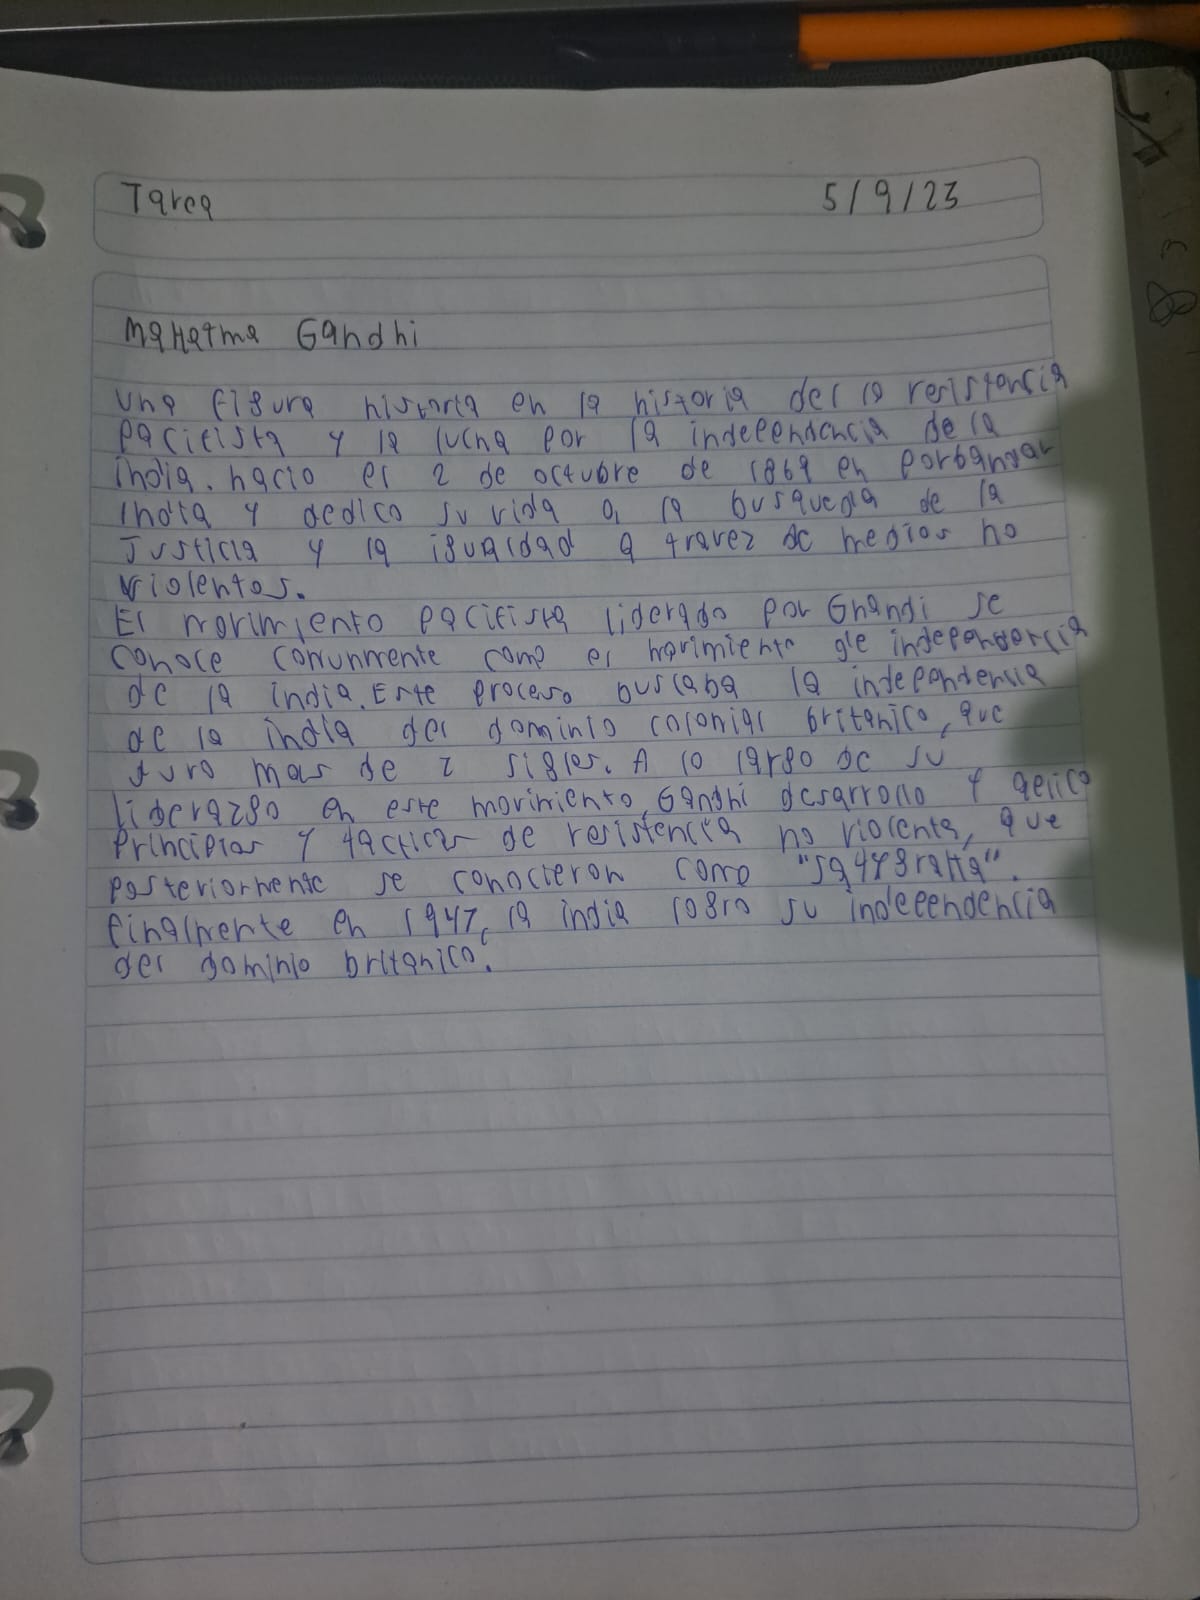 Tarea 5/9/23
Mahatma Gandhi
Una figura historia en la historia del la resistencia
pacifista y la lucha por la independencia de la
india. nacio el 2 de octubre de 1869 en porbandar
india y dedico su vida a la busqueda de la
Justicia y la igualdad a travez de medios no
violentos.
El movimiento pacifista liderado por Ghandi se
conoce comunmente como el movimiento de independencia
de la india. Este proceso buscaba la independencia
de la india del dominio colonial britanico, que
duro mas de 2 siglos. A lo largo de su
liderazgo en este movimiento, Gandhi desarrollo y aplico
Principios y tacticas de resistencia no violenta, que
posteriormente se conocieron como "satygraha".
finalmente en 1947, la india logro su independencia
del dominio britanico.